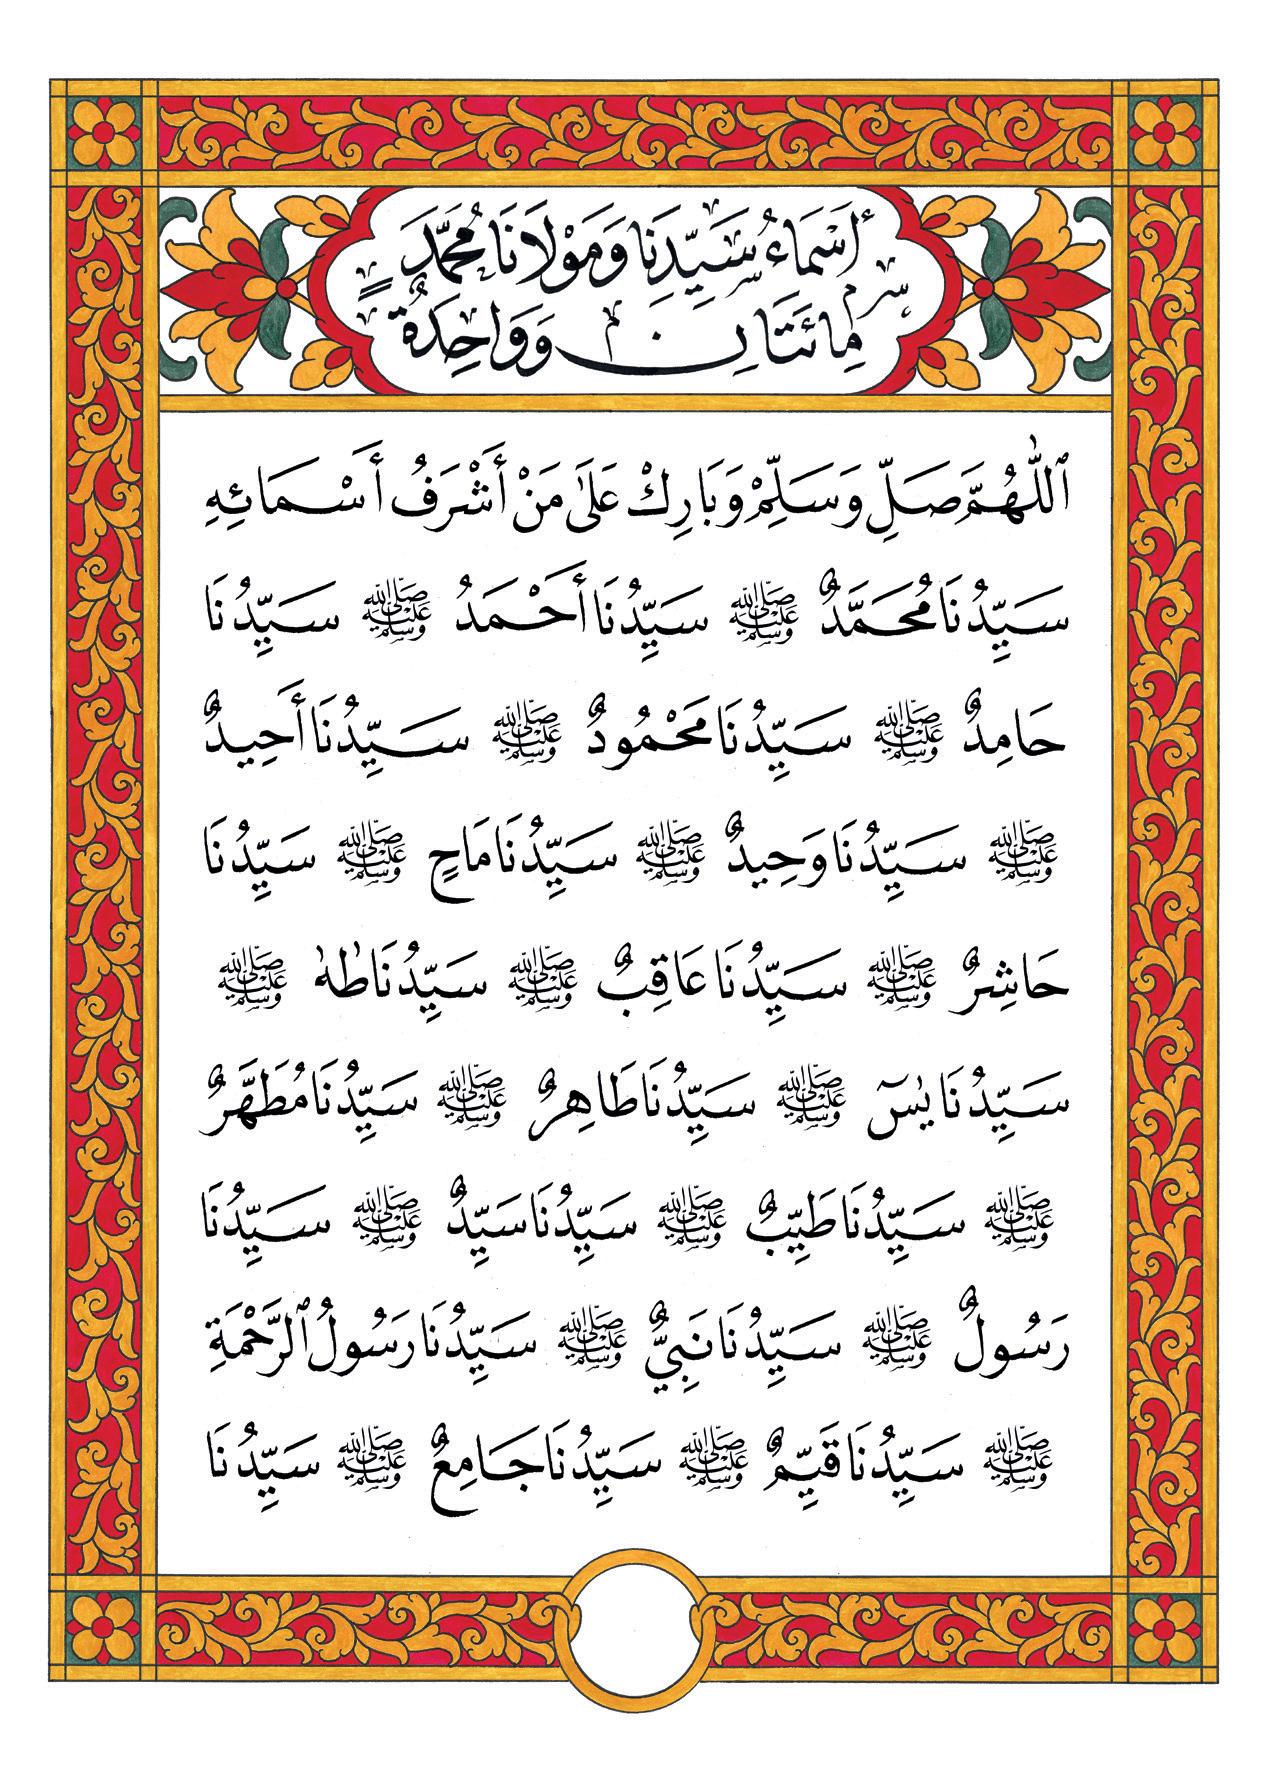 أَسْمَاءُ سَيِّدِنَا وَمَوْلَانَا مُحَمَّدٍ
مِائَتَانِ وَوَاحِدَةٌ
ٱللّٰهُمَّ صَلِّ وَسَلِّمْ وَبَارِكْ عَلَىٰ مَنْ أَشْرَفُ أَسْمَائِهِ
سَيِّدُنَا مُحَمَّدٌ ﷺ سَيِّدُنَا أَحْمَدُ ﷺ سَيِّدُنَا
حَامِدٌ ﷺ سَيِّدُنَا مَحْمُودٌ ﷺ سَيِّدُنَا أَحِيدٌ
ﷺ سَيِّدُنَا وَحِيدٌ ﷺ سَيِّدُنَا مَاحٍ ﷺ سَيِّدُنَا
حَاشِرٌ ﷺ سَيِّدُنَا عَاقِبٌ ﷺ سَيِّدُنَا طٰهٰ ﷺ
سَيِّدُنَا يٰسٓ ﷺ سَيِّدُنَا طَاهِرٌ ﷺ سَيِّدُنَا مُطَهَّرٌ
ﷺ سَيِّدُنَا طَيِّبٌ ﷺ سَيِّدُنَا سَيِّدٌ ﷺ سَيِّدُنَا
رَسُولٌ ﷺ سَيِّدُنَا نَبِيٌّ ﷺ سَيِّدُنَا رَسُولُ ٱلرَّحْمَةِ
ﷺ سَيِّدُنَا قَيِّمٌ ﷺ سَيِّدُنَا جَامِعٌ ﷺ سَيِّدُنَا